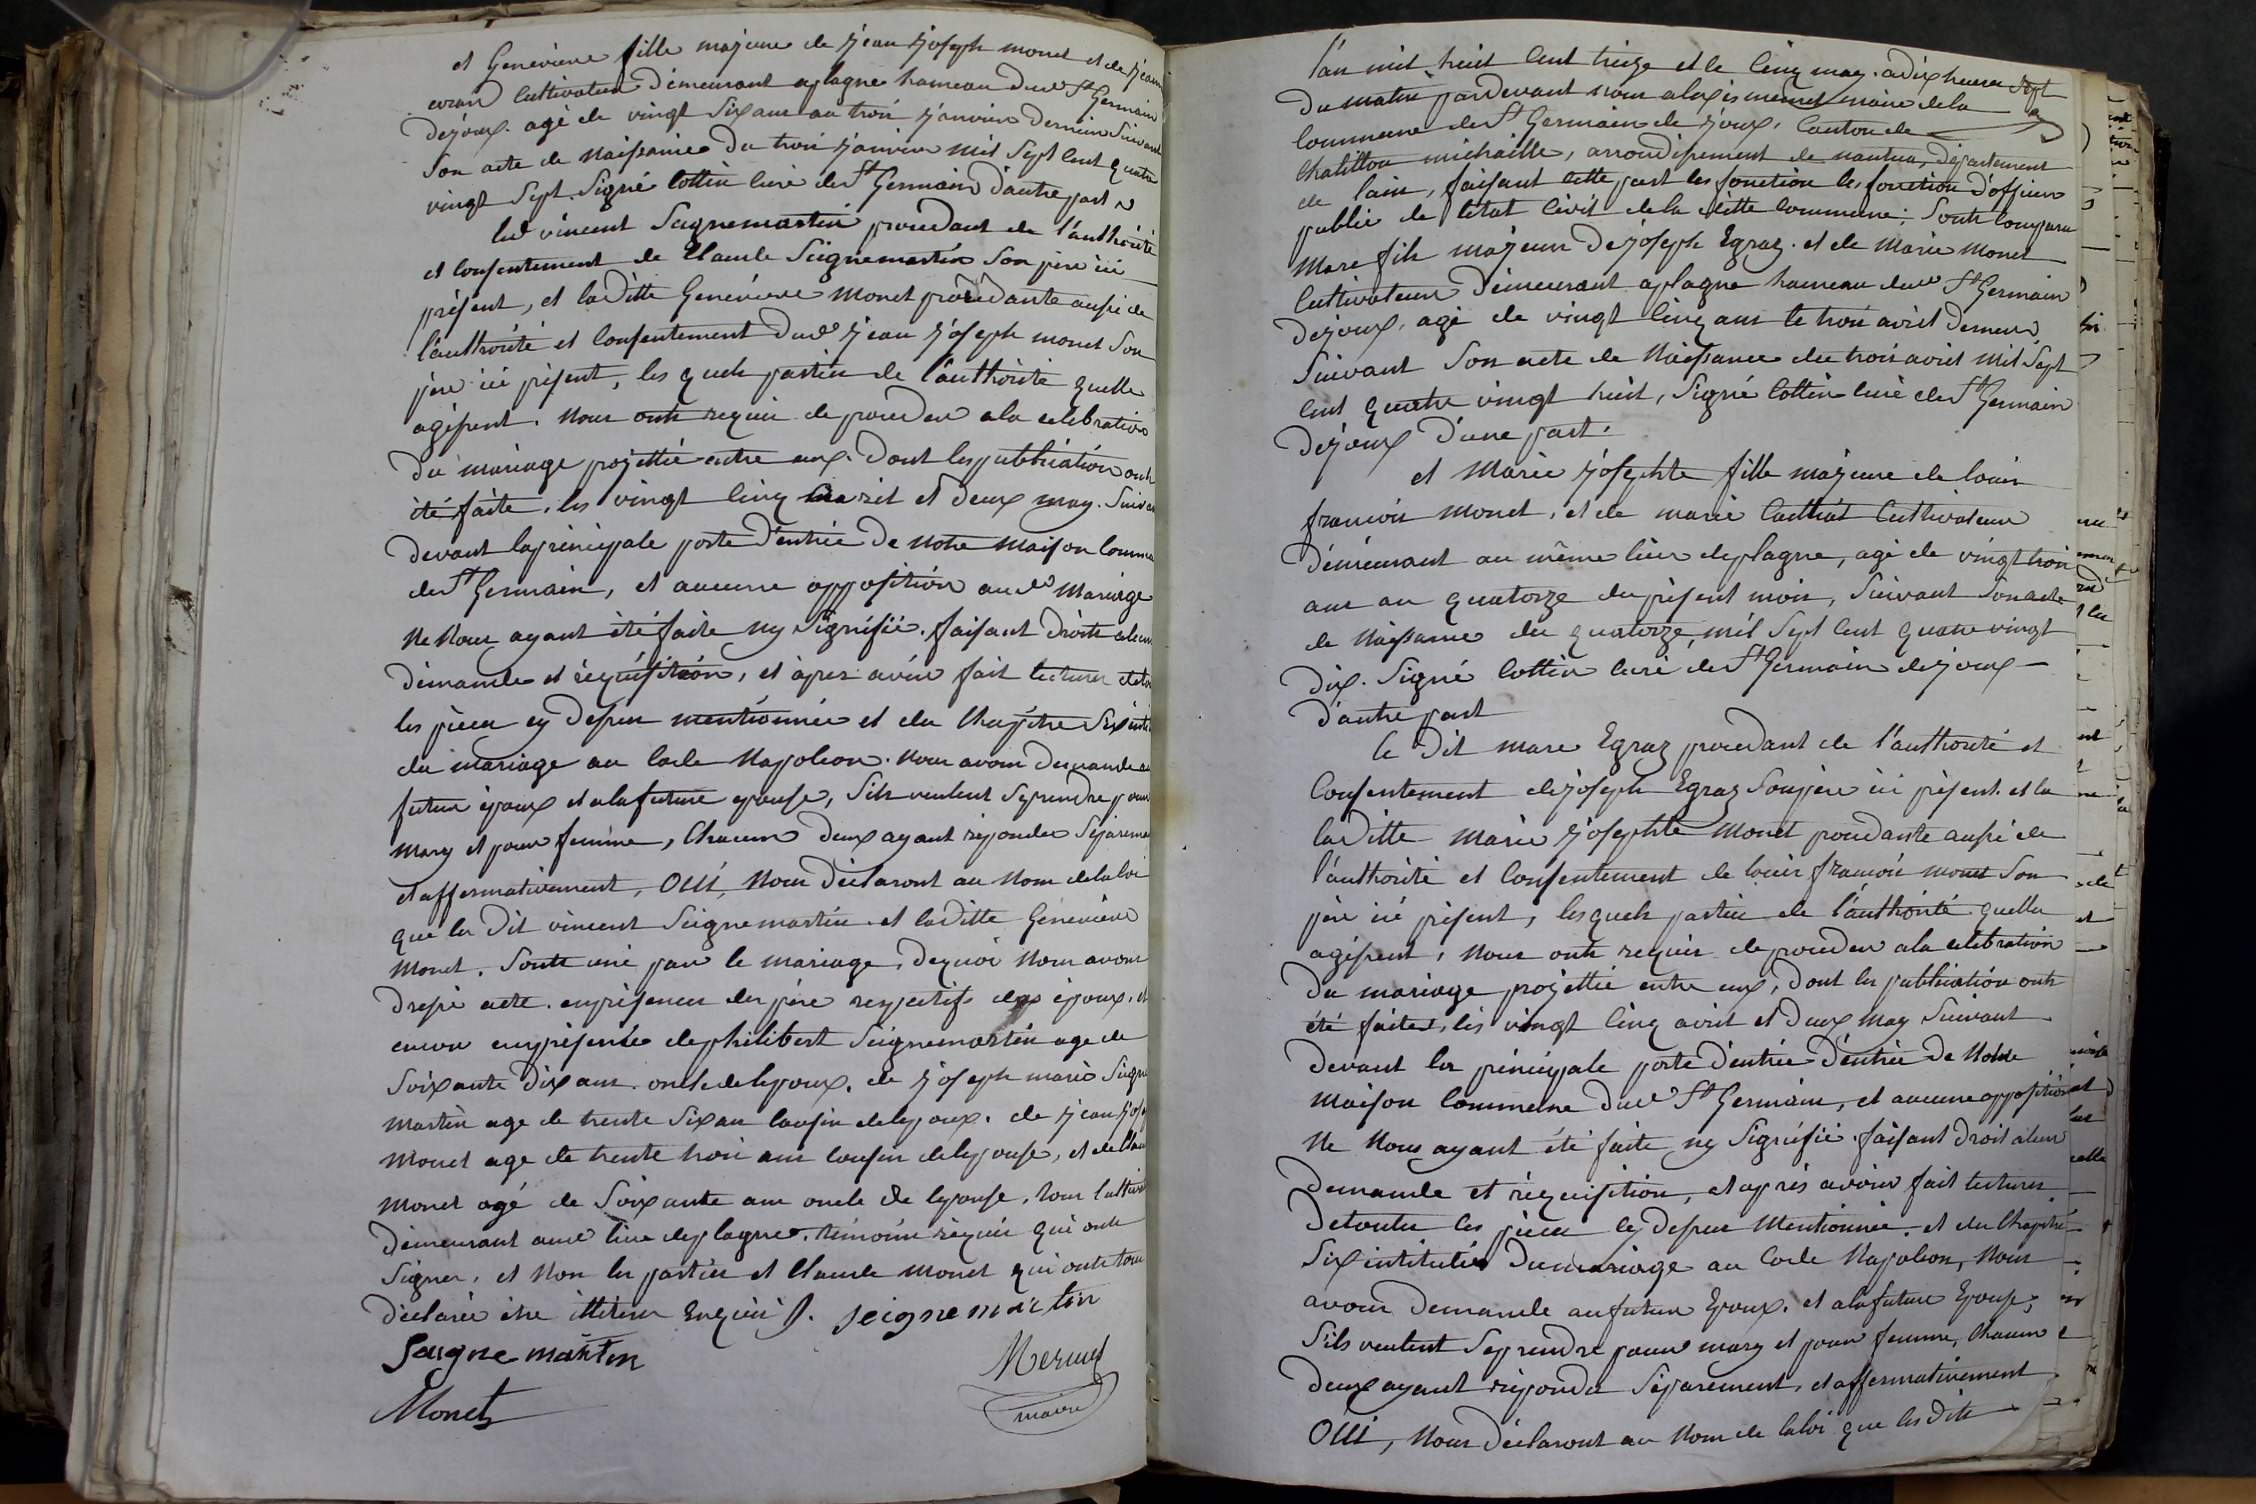 et Genevieve fille majeure de jean joseph monet et de jeanne
cultivateur demeurant aplagne hameau dud St Germain
dejoux. agé de vingt six ans au trois janvier dernier suivant
son acte de Naissance du trois janvier mil sept cent quatre
vingt sept. signé cottin curé de St Germain d'autre part
led vincent Seignemartin procedant de l'authorité
et consentement de Claude Seignemartin son père ici
présent, et laditte Genevieve monet procedante aussi de
l'authorité et consentement dud jean joseph monet son
père ici présent, les quels parties de l'authorité quelle
agissent. Nous onts requis de proceder a la celebration
du mariage projettié entre eux. dont les publication onts
été faite, les vingt cinq avril et deux may. suivant
devant la principale porte d'entrée de Notre maison commune
de St Germain, et aucune opposition aud mariage
Ne Nous ayant été faite ny signifié. faisant droits aleur
demande et réquisition, et apres avoir fait lecture de toutes
les pieces cy dessus mentionnée et du Chapitre Six intitulé
du mariage au Code Napoleon. Nous avons demandé au
futur époux et a la future epouse, Sils veulent seprendre pour
mary et pour femme, Chacun deux ayant repondu séparement
et affermativement, OUI, Nous déclaront au Nom de la loi
que le dit vincent Seignemartin et laditte Genevieve
Monet. Sonts uni par le mariage. dequoi Nous avons
dressé acte. en présence des père respectifs des époux, et
encore enpresence de philibert Seignemartin age de
soixante dix ans. oncle de lepoux. de joseph marie Seigne
martin age de trente six an cousin de lepoux. de jean joseph
Monet age de trente trois ans cousin de lepouse, et de Claude
Monet agé de soixante ans oncle de lepouse, tous cultivateurs
demeurant aud lieu de plagne. témoins requis qui onts
signer, et Non les parties et Claude Monet qui onts tous
déclarée être illiteré Enquis J. seignemartin
Seigne martin
Mermet
Monet
maire
l'an mil huit cent treize et le cinq may. a dix heures Sept
du matin pardevant nous alexis mermet maire de la
commune de St Germain de joux, canton de
chatillon michaille, arrondissement de nantua, département
de lain, faisant cette part les fonction les fonction d'officier
public de letat civil de la ditte commune. sonts comparu
Marc fils majeur de joseph Egraz. et de Marie Monet
cultivateur demeurant aplagne hameau dud St Germain
dejoux, agé de vingt cinq ans le trois avril dernier
suivant son acte de Naissance du trois avril mil sept
cent quatre vingt huit, signé cottin curé de St Germain
dejoux d'une part.
et Marie josephte fille majeure de louis
francois monet, et de marie cultivateur
demeurant au même lieu de plagne, agé de vingt trois
ans au quatorze du présent mois, suivant son acte
de Naissance du quatorze, mil sept cent quatre vingt
dix. signé cottin curé de St Germain dejoux
d'autre part
le dit marc Egraz procedant de l'authorité et
consentement de joseph Egraz son père ici présent. et la
laditte Marie josephte Monet procedante aussi de
l'authorité et consentement de louis francois monet son
père ici présent, les quels parties de l'authorité quelles
agissent, Nous onts requis de proceder a la celebration
du mariage projettié entre eux, dont les publication onts
été faites, les vingt cinq avril et deux may suivant
devant la principale porte d'entrée d'entrée de Notre
maison commune dud St Germain, et aucune opposition
Ne Nous ayant été faite ny signifié. faisant droit aleur
demande et réquisition, et après avoir fait lecture
detoutes les pieces cy dessus mentionnée. et du Chapitre
Six intitulés du mariage au Code Napoleon, Nous
avons demande au futur Epoux. et a la future Epouse,
Sils veulent seprendre pour mary et pour femme, Chacun
deux ayant repondu séparement, et affermativement
OUI, Nous déclaront au Nom de la loi que les dits